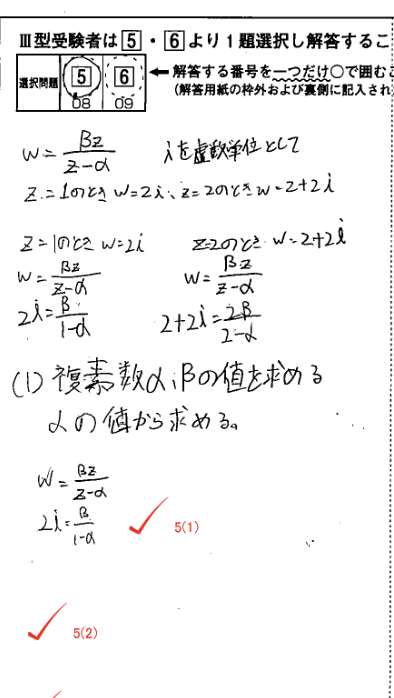 Ⅲ型受験者は 5 ・ 6 より1題選択し解答するこ
選択問題 5 6 ← 解答する番号を一つだけ○で囲むこ
08 09 (解答用紙の枠外および裏側に記入され
w = βz/(z-α) iを虚数単位として
z=1のとき w=2i、z=2のとき w=2+2i
z=1のとき w=2i z=2のとき w=2+2i
w = βz/(z-α) w = βz/(z-α)
2i = β/(1-α) 2+2i = 2β/(2-α)
(1) 複素数α,βの値を求める
αの値から求める。
w = βz/(z-α)
2i = β/(1-α)
5(1)
5(2)